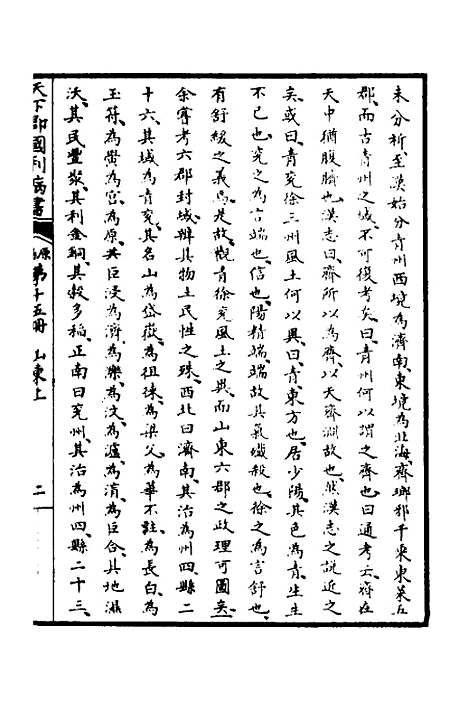 未分析至漢始分青州西境為濟南、東境為北海、齊、瑯邪、千乘、東萊五
郡、而古青州之域、不可復考矣、曰、青州何以謂之齊也、曰、通考云、齊在
天中、猶腹臍也、漢志曰、齊所以為齊、以天齊淵故也、然漢志之說近之
矣、或曰、青徐三州風土何以異、曰、青東方也、居少陽、其色為青、生生
不已也、兗之為言端也、信也、陽精端端、故其氣殺也、徐之為言舒也、
有舒緩之義焉、是故觀青徐兗風土之異、而山東六郡之政理可圖矣、
余嘗考六郡封域、辨其物土民性之殊、西北曰濟南、其治為州四、縣二
十六、其域為青兗、其名山為岱嶽、為徂徠、為梁父、為華不註、為長白、為
玉符、為黌、為宮、為原、其巨浸為濟、為濼、為汶、為瀘、為清、為巨合、其地濕
沃、其民豐裝、其利金銅、其穀多稻、正南曰兗州、其治為州四、縣二十三、
天下郡國利病書
原編第十五冊 山東上
二